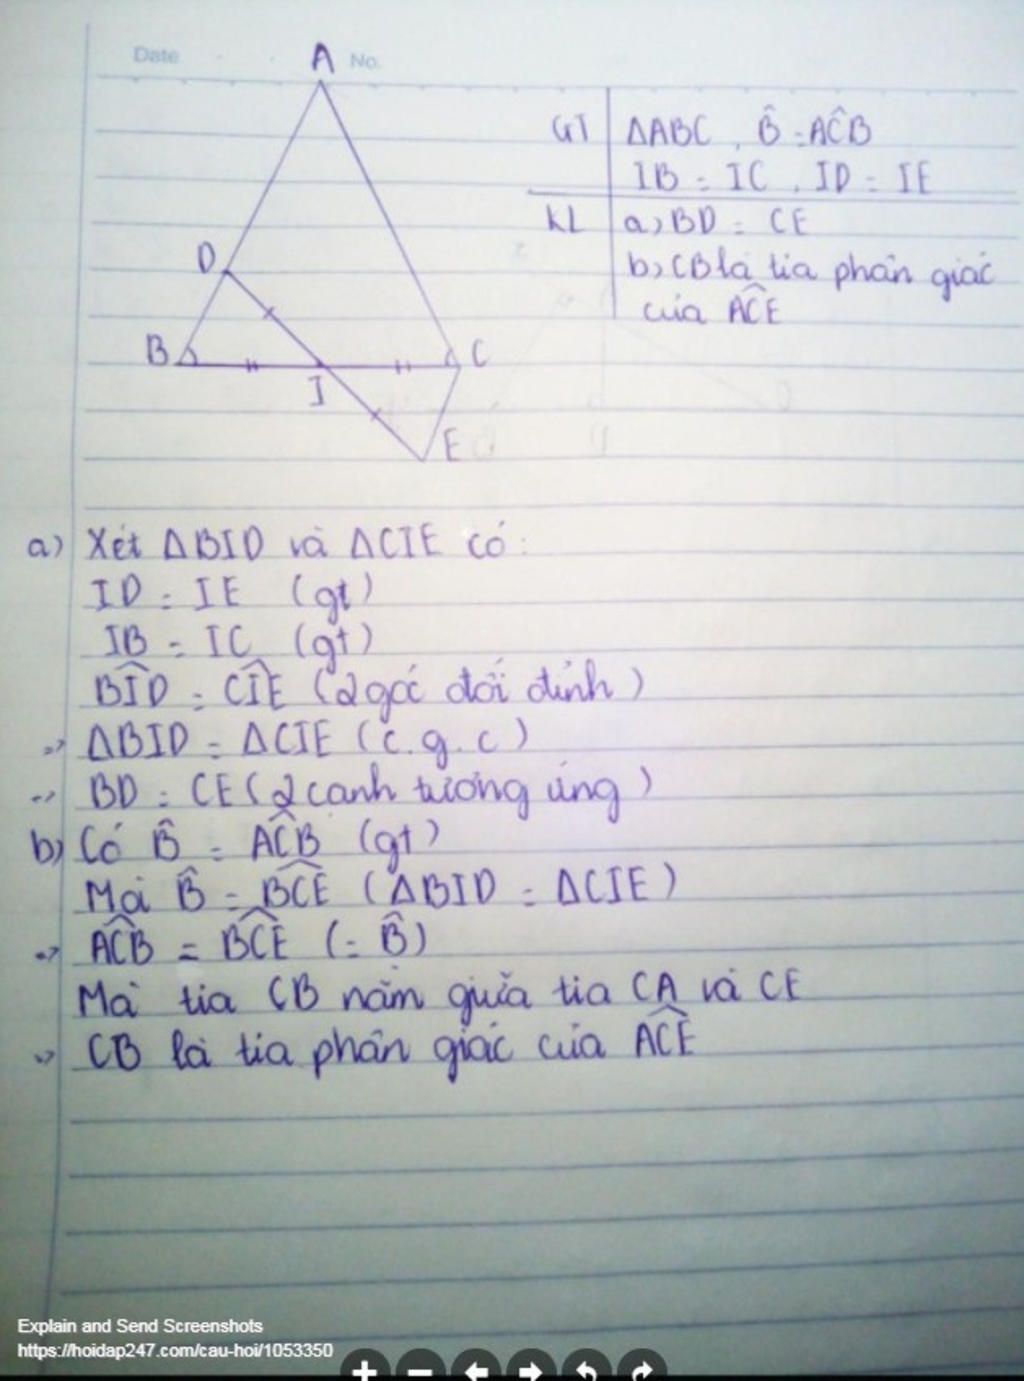 Date No.
A
D
B
C
I
E
GT ΔABC, B̂ = AĈB
IB = IC, ID = IE
KL a) BD = CE
b) CB là tia phân giác
của AĈE
a) Xét ΔBID và ΔCIE có:
ID = IE (gt)
IB = IC (gt)
BÎD = CÎE (2 góc đối đỉnh)
=> ΔBID = ΔCIE (c.g.c)
=> BD = CE (2 cạnh tương ứng)
b) Có B̂ = AĈB (gt)
Mà B̂ = BĈE (ΔBID = ΔCIE)
=> AĈB = BĈE (= B̂)
Mà tia CB nằm giữa tia CA và CE
=> CB là tia phân giác của AĈE
Explain and Send Screenshots
https://hoidap247.com/cau-hoi/1053350